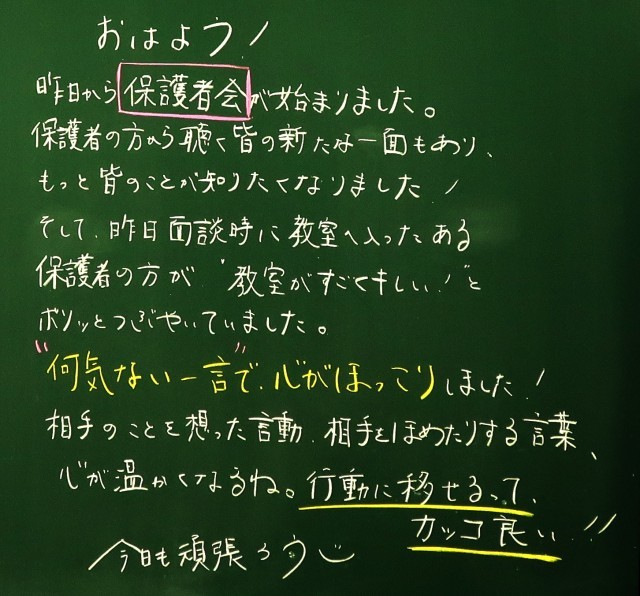 おはよう!
昨日から保護者会が始まりました。
保護者の方から聴く皆の新たな一面もあり、
もっと皆のことが知りたくなりました!
そして、昨日面談時に教室へ入ったある
保護者の方が〝教室がすごくキレい!〟と
ボソッとつぶやいていました。
〝何気ない一言〟で、心がほっこりしました!
相手のことを想った言動、相手をほめたりする言葉、
心が温かくなるね。行動に移せるって、
カッコ良い!!
今日も頑張ろう